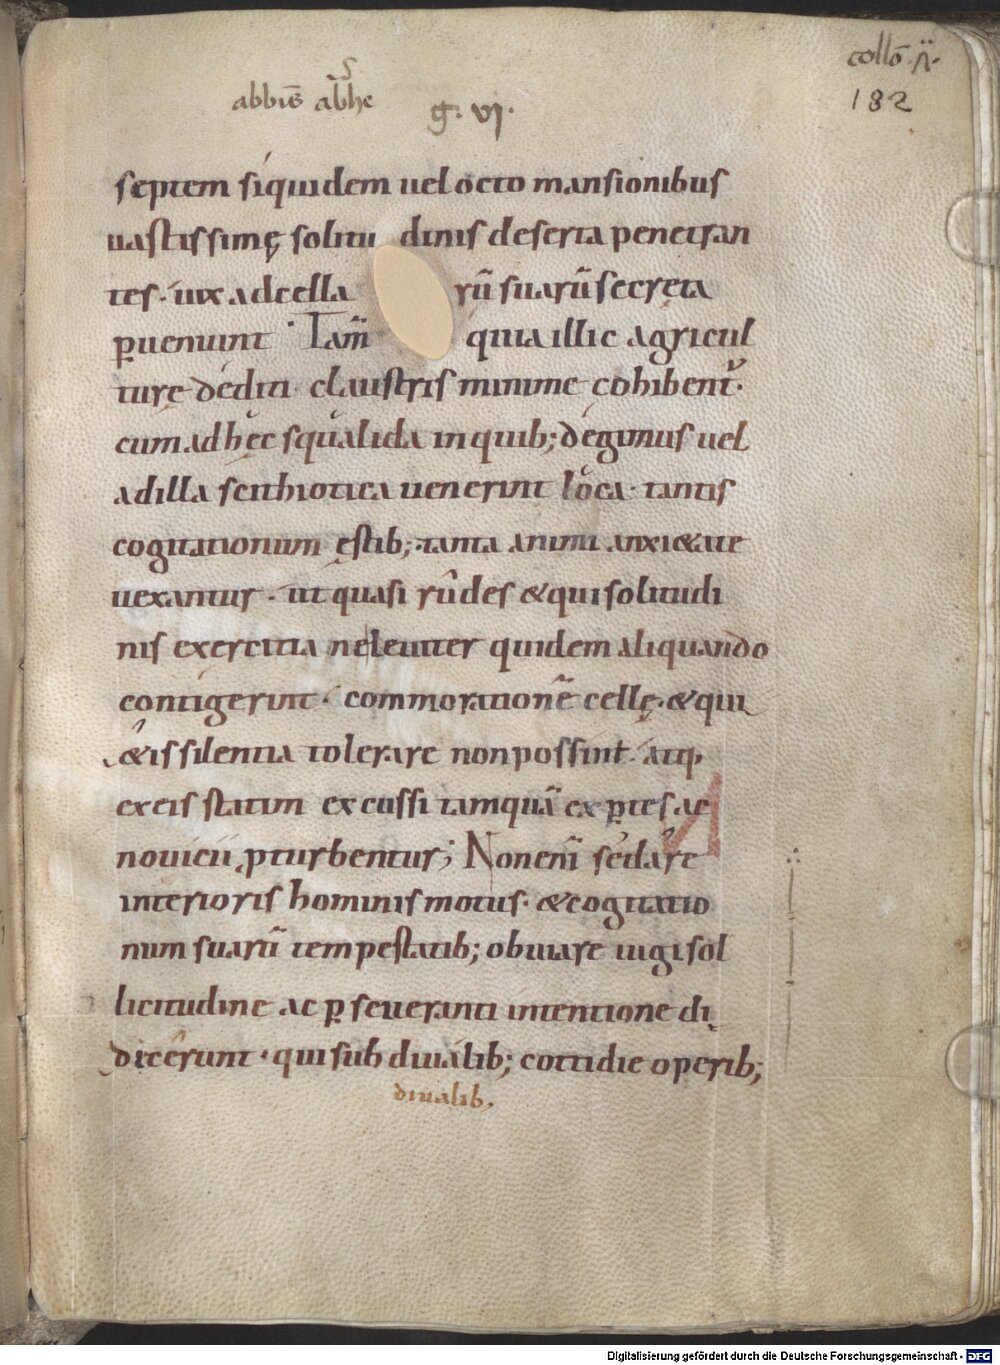 collō ·ii·
182
abbīs abhe
g. vi.
septem siquidem uel octo mansionibus
uastissimę solitu dinis deserta penetran
tes· uix ad cella rū suarū secreta
ꝑueniunt· Tam̄ quia illic agricul
turę dediti claustris minime cohibent̄·
cum ad hęc squalida in quib; degimus uel
ad illa scithiotica uenerint loca· tantis
cogitationum ęstib;· tanta animi anxi&ate
uexantur· ut quasi rudes & qui solitudi
nis exercitia nec leuiter quidem aliquando
contigerint· commorationē cellę· & qui
&is silentia tolerare non possint· atq;
ex eis statim excussi tamquā exꝑtes ac
nouicii ꝑturbentur; Non enī sedare
interioris hominis motus· & cogitatio
num suarū tempestatib; obuiare iugi sol
licitudine ac ꝑseueranti intentione di
dicerunt· qui sub diualib; cottidie operib;
diualib.
Digitalisierung gefördert durch die Deutsche Forschungsgemeinschaft - DFG